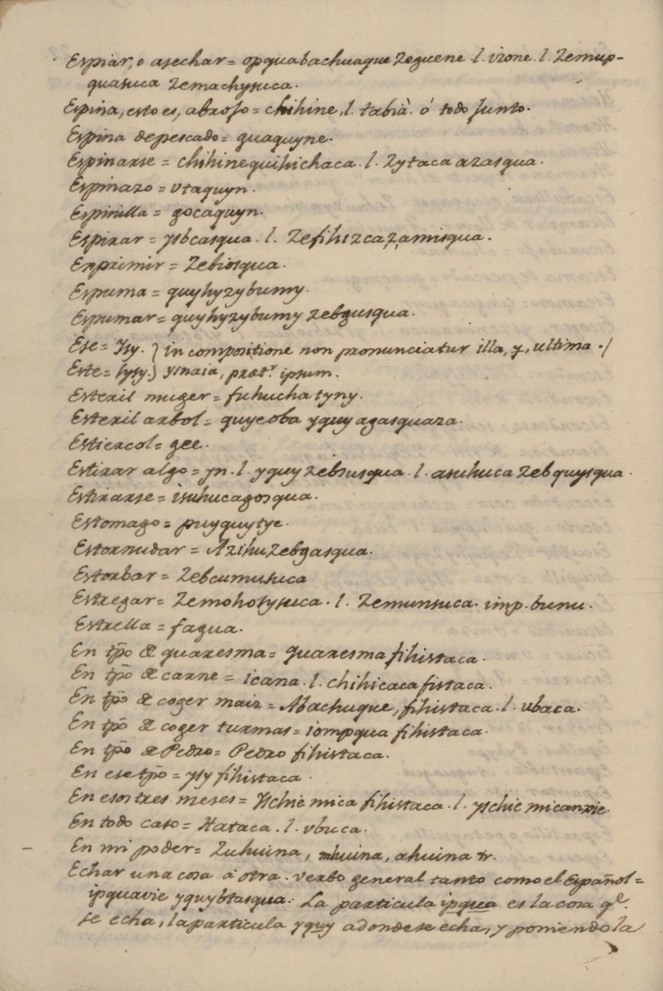 Espiar, o asechar = opquabachuaque zeguene .l. izone .l. zemup-
quasuca zemachysuca.
Espina, esto es, abrojo = chihine, l. tabia. ó todo junto.
Espina de pescado = guaguyne.
Espinarse = chihinequihichaca .l. zytaca azasqua.
Espinazo = utaquyn.
Espinilla = gocaquyn.
Espirar = ysbcasqua .l. zefihizcazamisqua.
Exprimir = zebiosqua.
Espuma = quyhyzybumy.
Espumar = quyhyzybumy zebgusqua.
Ese = ysy. } in compositione non pronunciatur illa, y, ultima ./
Este = sysy. } ysnaia, præt.r ipsum.
Esteril muger = fuhucha tyny.
Esteril arbol = quye oba yquy agasquaza.
Estiercol = gee.
Estirar algo = yn .l. yquy zebsusqua .l. asuhuca zebquysqua.
Estirarse = isuhucagosqua.
Estomago = puyquyye.
Estornudar = Azihuzebgasqua.
Estorbar = zebcumusuca
Estregar = zemohosysuca .l. zemunsuca. imp. bunu.
Estrella = fagua.
En tpõ de quaresma = quaresma fihistaca.
En tpõ de carne = icana .l. chihicaca fistaca.
En tpõ de coger maiz = Abachuque, fihistaca .l. ubaca.
En tpõ de coger turmas = iompqua fihistaca.
En tpõ de Pedro = Pedro fihistaca.
En ese tpõ = ysy fihistaca.
En esos tres meses = yschie mica fihistaca .l. yschie micanxie.
En todo caso = Hataca .l. ubuca.
En mi poder = Zuhuina, mhuina, ahuina tr.
Echar una cosa á otra. verbo general tanto como el Español =
ipquavie yquybtasqua. La particula ipqua es la cosa q.e
se echa, la particula yquy adonde se echa, y poniendo la